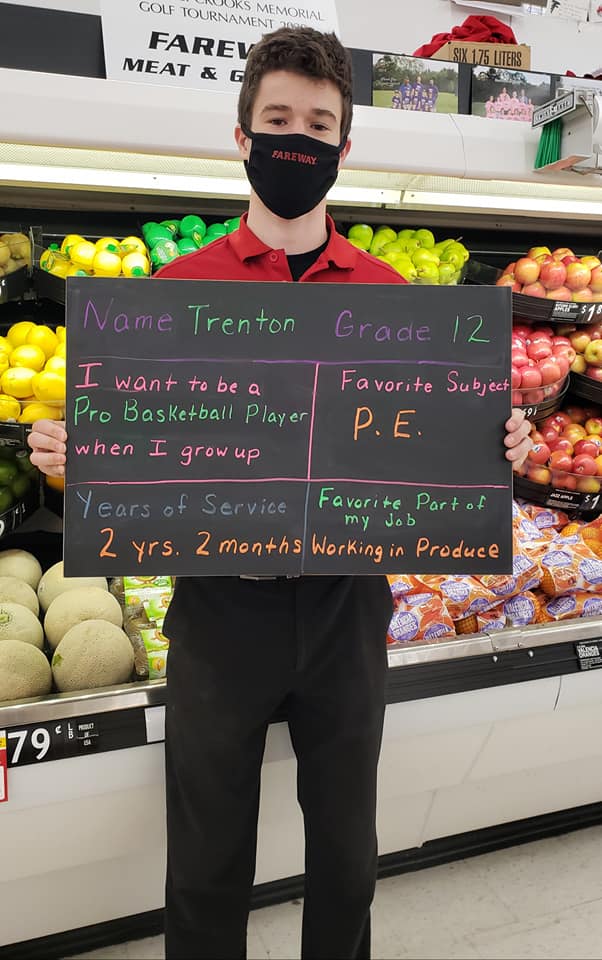 CROOKS MEMORIAL
GOLF TOURNAMENT
FAREW
MEAT & G
SIX 1.75 LITERS
FAREWAY
Name Trenton Grade 12
I want to be a
Pro Basketball Player
when I grow up
Favorite Subject
P.E.
Years of Service
2 yrs. 2 months
Favorite Part of
my Job
Working in Produce
79¢ LB PRODUCT
USA
JAZZ APPLE $1
VALENCIA
ORANGES